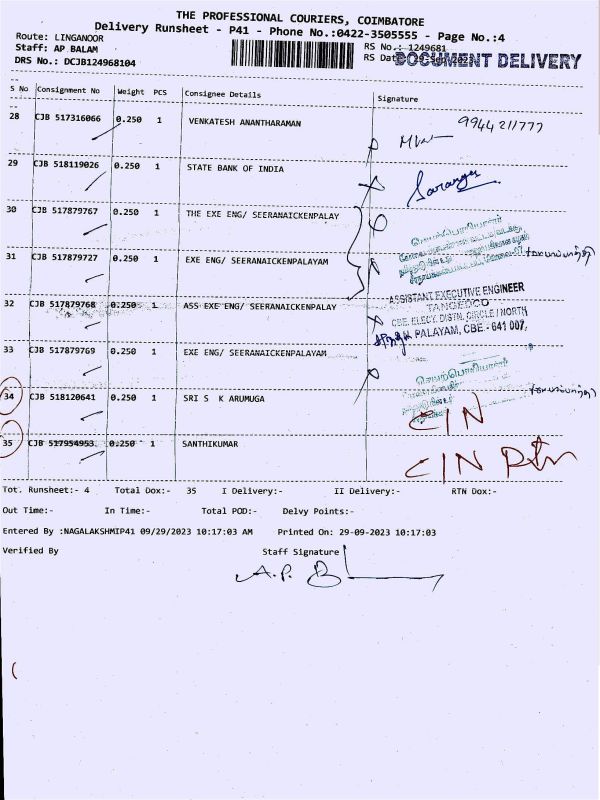 THE PROFESSIONAL COURIERS, COIMBATORE
Delivery Runsheet - P41 - Phone No.:0422-3505555 - Page No.:4
Route: LINGANOOR
RS No.: 1249681
Staff: AP BALAM
RS Date: 29-Sep-2023
DOCUMENT DELIVERY
DRS No.: DCJB124968104
S No Consignment No Weight PCS Consignee Details Signature
28 CJB 517316066 0.250 1 VENKATESH ANANTHARAMAN 9944211777
29 CJB 518119026 0.250 1 STATE BANK OF INDIA
30 CJB 517879767 0.250 1 THE EXE ENG/ SEERANAICKENPALAY
செயற்பொறியாளர்
31 CJB 517879727 0.250 1 EXE ENG/ SEERANAICKENPALAYAM
ASSISTANT EXECUTIVE ENGINEER
TANGEDCO
32 CJB 517879768 0.250 1 ASS EXE ENG/ SEERANAICKENPALAY
CBE. ELECY. DISTN. CIRCLE / NORTH
PALAYAM, CBE - 641 007.
33 CJB 517879769 0.250 1 EXE ENG/ SEERANAICKENPALAYAM
செயற்பொறியாளர்
34 CJB 518120641 0.250 1 SRI S K ARUMUGA
C/N
35 CJB 517954953 0.250 1 SANTHIKUMAR
C/N Rtn
Tot. Runsheet:- 4 Total Dox:- 35 I Delivery:- II Delivery:- RTN Dox:-
Out Time:- In Time:- Total POD:- Delvy Points:-
Entered By :NAGALAKSHMIP41 09/29/2023 10:17:03 AM Printed On: 29-09-2023 10:17:03
Verified By Staff Signature
A.P. B